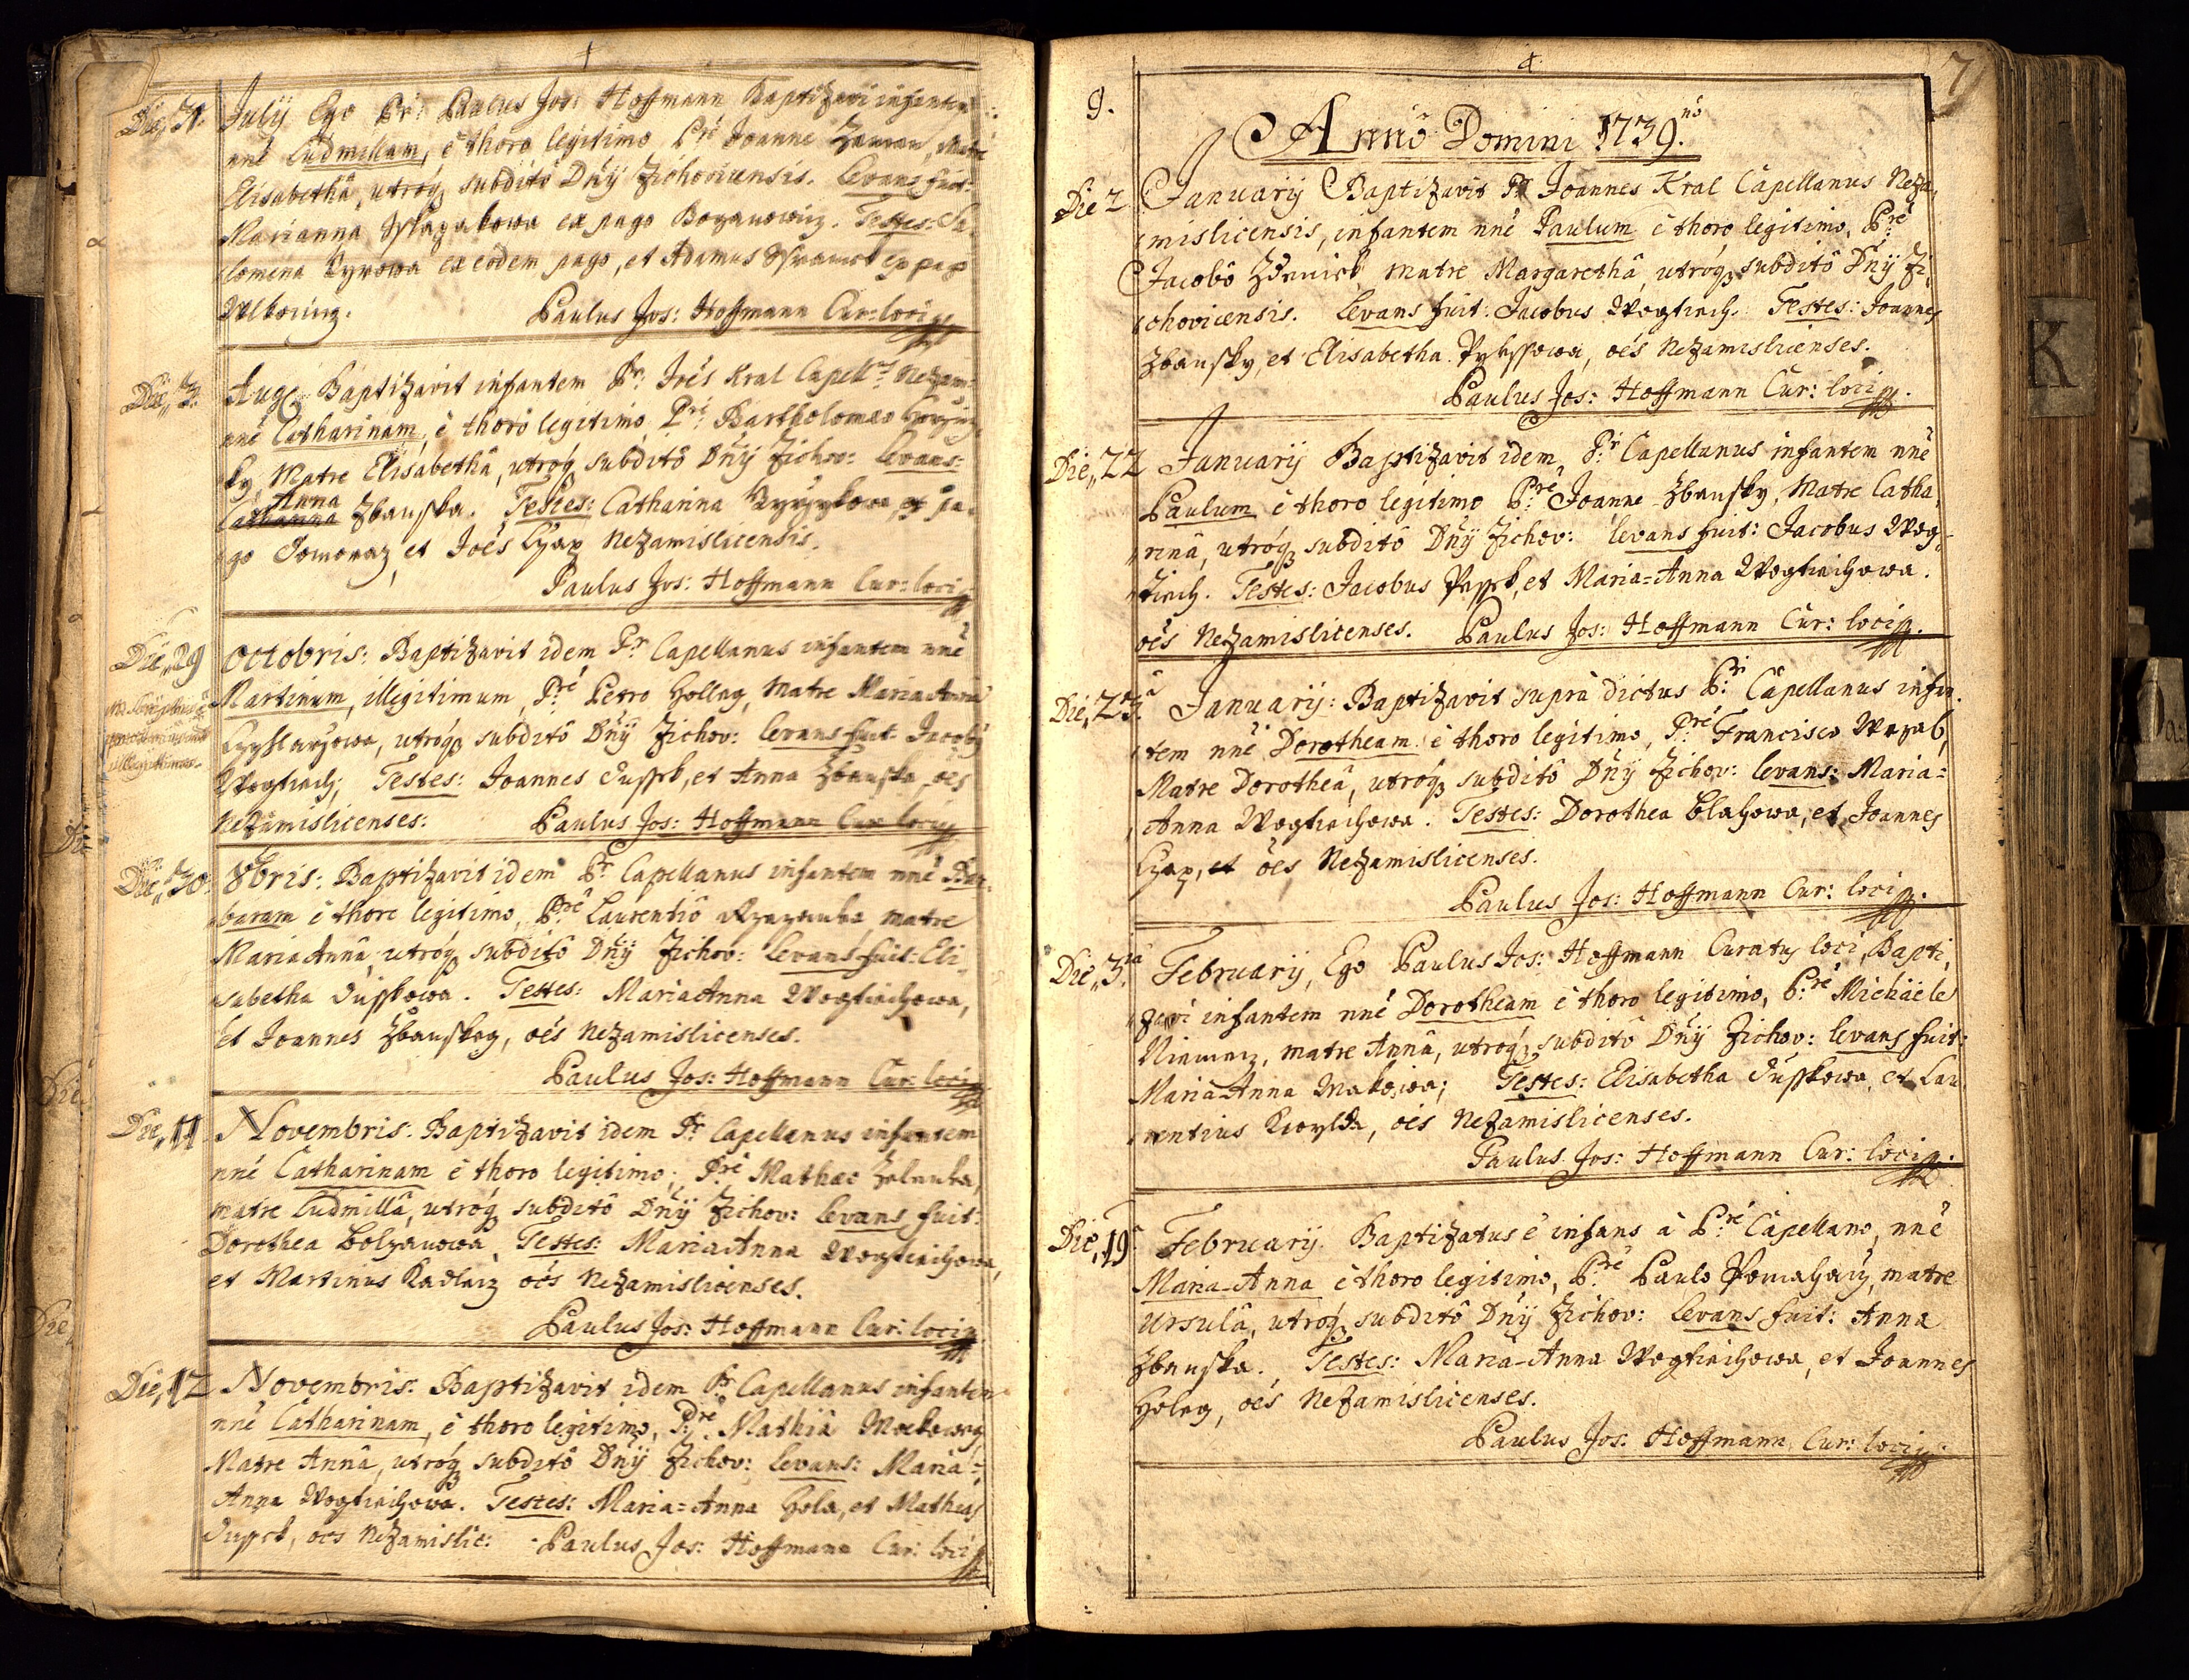 Die 31. Julij Ego Pr: Paulus Jos: Hoffmann Baptizavi infantem
nné Ludmillam, è thoro legitimo Pré Joanne Zeman, Matre
Elisabethâ, utróq subditô Dnÿ Zichovicensis. Levans fuit:
Marianna ex pago Bozanowicz. Testes: Sa,
lomena ex eodem pago, et Adamus ex pago
Paulus Jos: Hoffmann Cur: loci
Die, 3. Aug: Baptizavit infantem Pr: Joés Kral Capell: Nezam:
nné Catharinam, è thorô legitimo, Pré Bartholomæo
ky, Matre Elisabethâ, utróq subditô Dnÿ Zichov: Levans:
Anna
Catharina Zbanska. Testes: Catharina ex pa,
go et Joés Czap Nezamislicensis.
Paulus Jos: Hoffmann Cur: loci
Die, 29 Octobris: Baptizavit idem Pr Capellanus infantem nné
Martinum, illegitimum, Pré Petro Holleg, Matre Maria Annâ
utróq subditô Dnÿ Zichov: levans fuit Jacoby
Wogtiech, Testes: Joannes Dussek, et Anna Zbanska, oés
illegitimus.
Nezamislicenses: Paulus Jos: Hoffmann Cur: loci
Die, 30. 8bris: Baptizavit idem Pr Capellanus infantem nné Bar,
baram è thoro legitimo, Pré Laurentiô matre
Maria Annâ, utróq subditô Dnÿ Zichov: Levans fuit: Eli,
sabetha Dusskowa. Testes: Maria Anna Wogtiechowa,
et Joannes Zbanskey, oés Nezamislicenses.
Paulus Jos: Hoffmann Cur: loci
Die, 11 Novembris: Baptizavit idem Pr Capellanus infantem
nné Catharinam è thoro legitimo, Pré Mathæo Zelenka,
matre Ludmillâ, utróq subditô Dnÿ Zichov: levans fuit:
Dorothea Testes: Maria Anna Wogtiechowa,
et Martinus Kadlecz oés Nezamislicenses.
Paulus Jos: Hoffmann Cur: loci
Die, 12 Novembris: Baptizavit idem Pr Capellanus infantem
nné Catharinam, è thoro legitimo, Pré Mathiâ Makowey,
Matre Annâ, utróq subditô Dnÿ Zichov: levans: Maria=
Anna Wogtiechowa. Testes: Maria=Anna Hola, et Mathias
Dussek, oés Nezamislic: Paulus Jos: Hoffmann Cur: loci
7
9.
Annô Domini 1739.nó
Die 2 Januarij Baptizavit Pr Joannes Kral Capellanus Neza,
mislicensis, infantem nné Paulum è thoro legitimo, Pré
Jacobô matre Margarethâ, utróq subditô Dnÿ Zi,
chovicensis. Levans fuit: Jacobus Wogtiech. Testes: Joannes
Zbansky, et Elisabetha oés Nezamislicenses.
Paulus Jos: Hoffmann Cur: loci
Die, 22 Januarij Baptizavit idem Pr Capellanus infantem nné
Paulum è thoro legitimo Pré Joanne Zbansky, Matre Catha,
rinâ, utróq subditô Dnÿ Zichov: levans fuit: Jacobus Wog,
tiech. Testes: Jacobus et Maria=Anna Wogtiechowa.
oés Nezamislicenses. Paulus Jos: Hoffmann Cur: loci
Die, 23. Januarij: Baptizavit suprà dictus Pr Capellanus infan,
tem nné Dorotheam è thoro legitimo, Pré Francisco
Matre Dorotheâ, utróq subditô Dnÿ Zichov: levans: Maria=
Anna Wogtiechowa. Testes: Dorothea Blahowa, et Joannes
Czap, et oés Nezamislicenses.
Paulus Jos: Hoffmann Cur: loci
Die, 3. Februarij, Ego Paulus Jos: Hoffmann Curatus loci, Bapti,
zavi infantem nné Dorotheam è thoro legitimo, Pré Michaële
matre Annâ, utróq subditô Dnÿ Zichov: levans fuit:
Maria Anna Makowa; Testes: Elisabetha Dusskowa, et Lau,
rentius oés Nezamislicenses.
Paulus Jos: Hoffmann Cur: loci
Die, 19 Februarij. Baptizatus é infans à Pré Capellano, nné
Maria-Anna è thoro legitimo, Pré Paulo matre
Ursulâ, utróq subditô Dnÿ Zichov: levans fuit: Anna
Zbanska. Testes: Maria-Anna Wogtiechowa, et Joannes
Holeg, oés Nezamislicenses.
Paulus Jos: Hoffmann Cur: loci
K